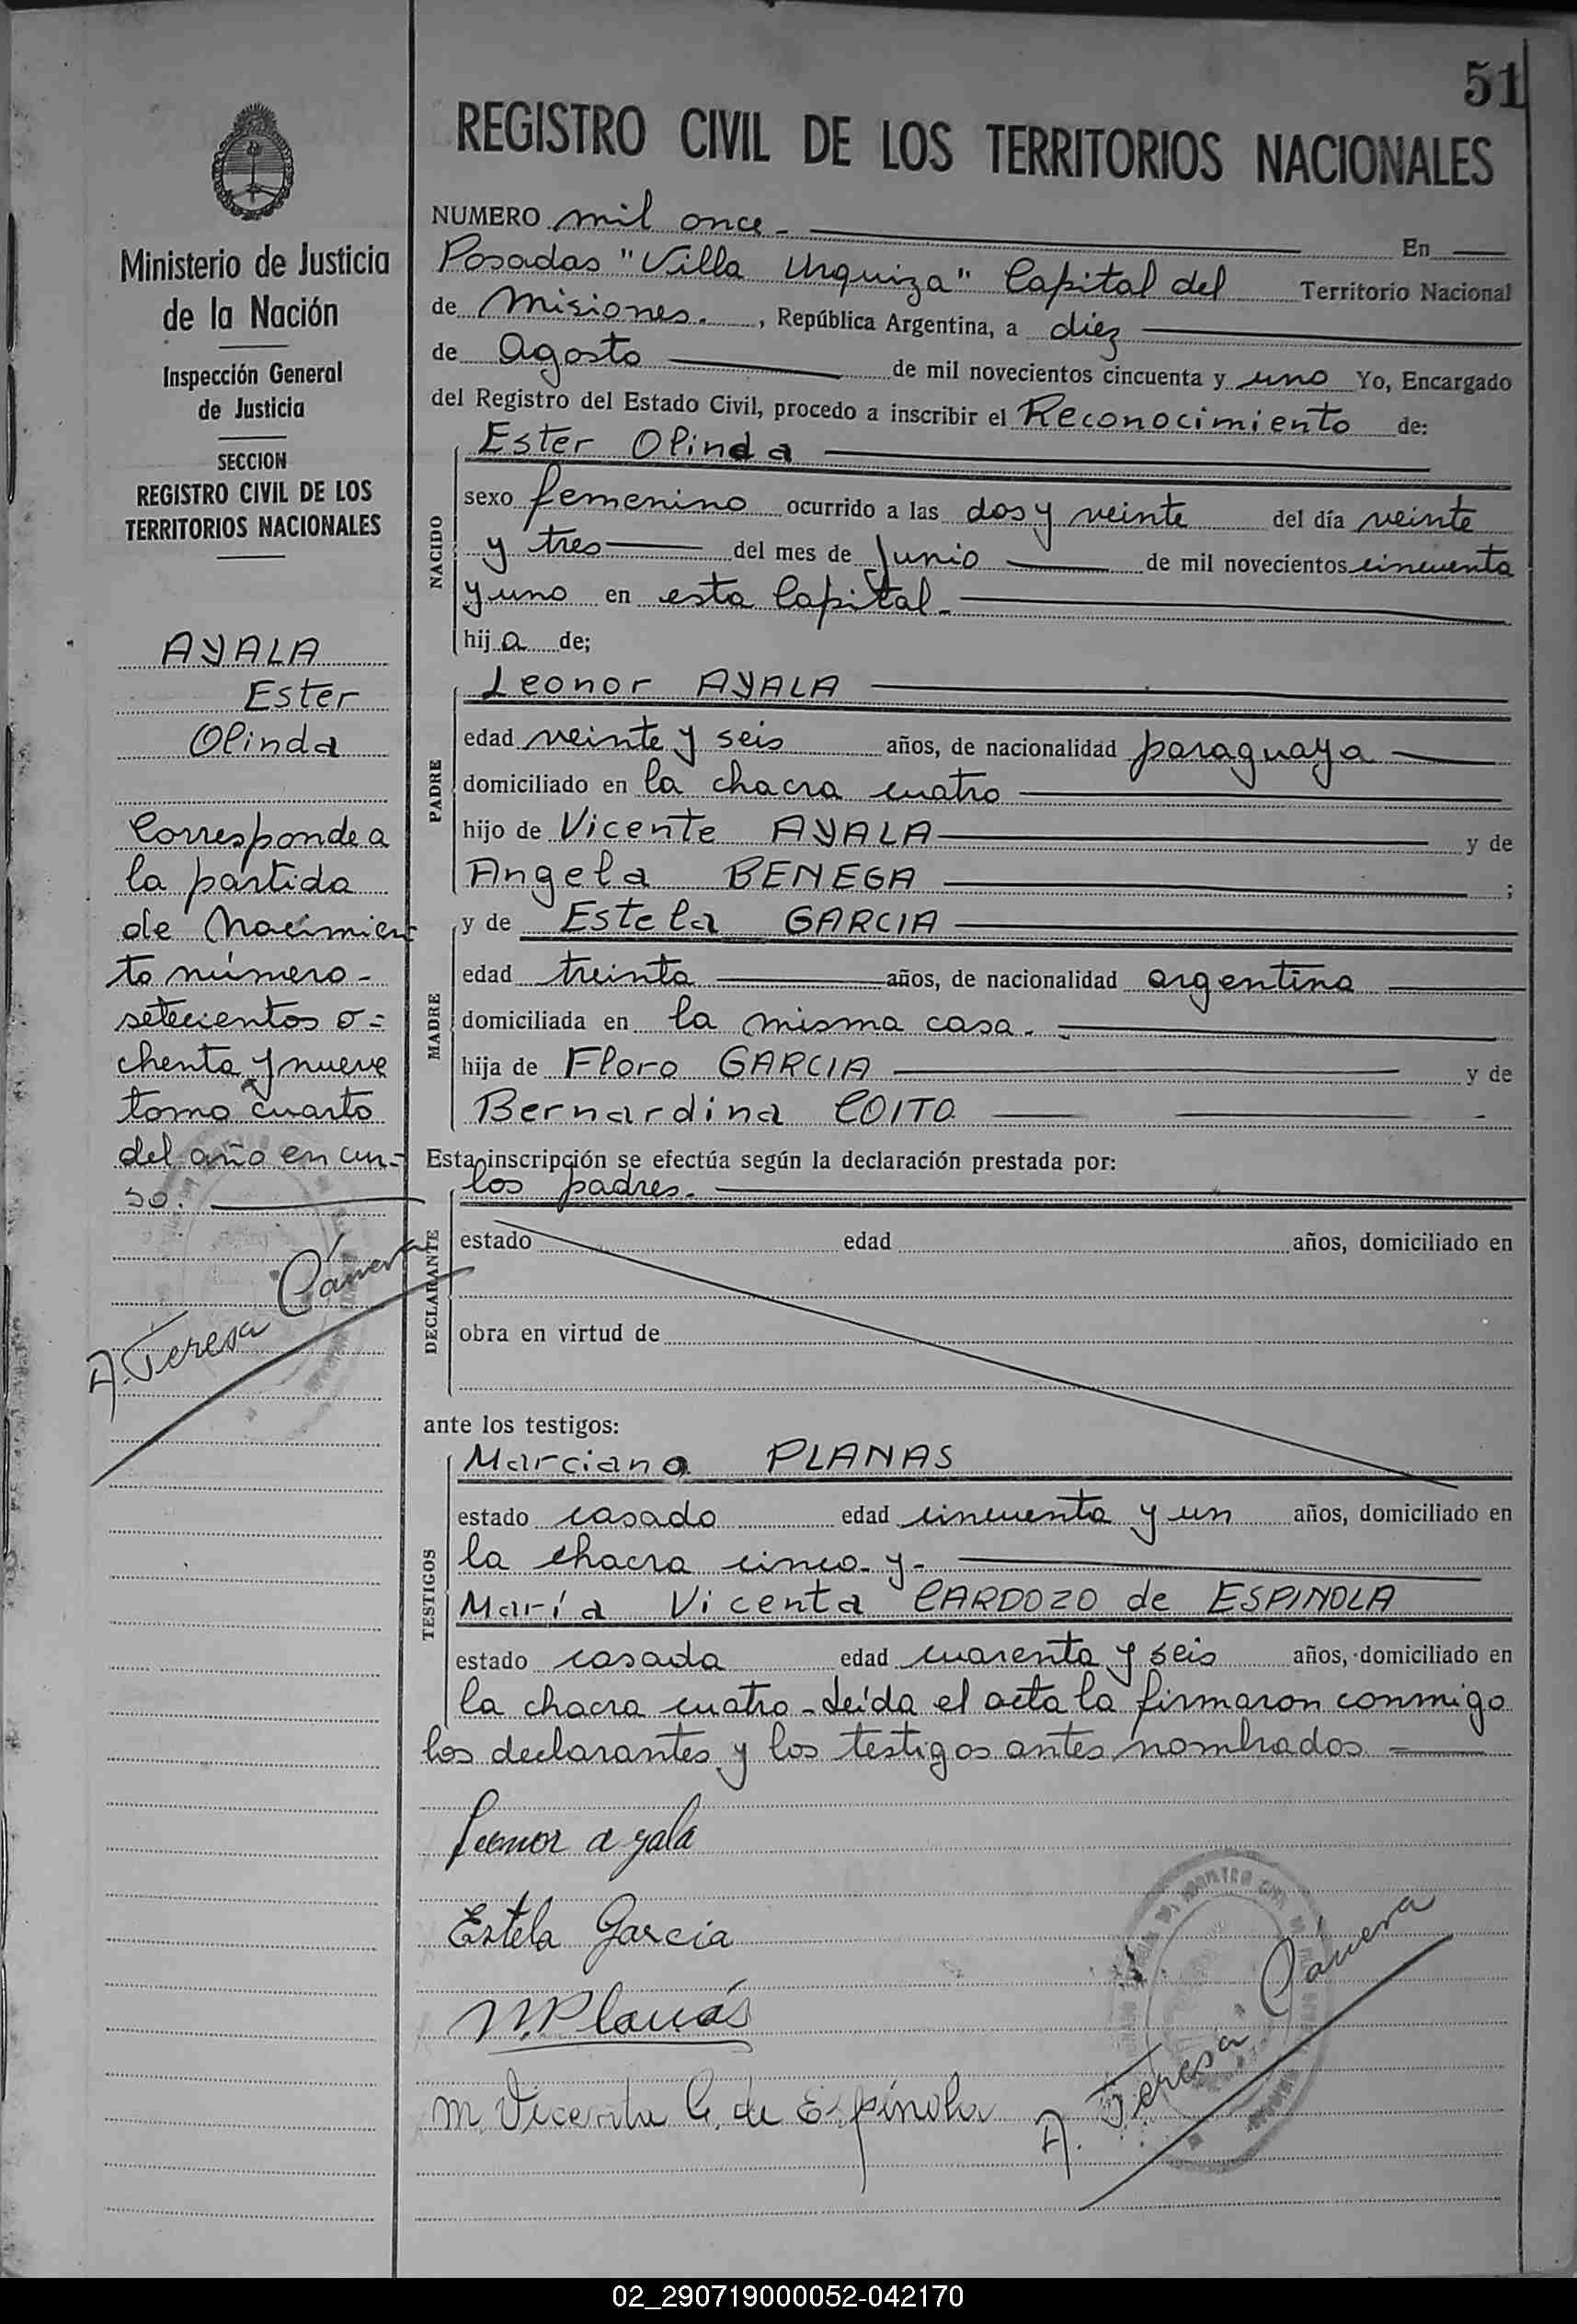 51
REGISTRO CIVIL DE LOS TERRITORIOS NACIONALES
Ministerio de Justicia
de la Nación
Inspección General
de Justicia
SECCION
REGISTRO CIVIL DE LOS
TERRITORIOS NACIONALES
AYALA
Ester
Olinda
Corresponde a
la partida
de Nacimien
to número-
setecientos o=
chenta y nueve
tomo cuarto
del año en cur=
so.
A. Teresa Cánera
NUMERO mil once. En
Posadas "Villa Urquiza" Capital del Territorio Nacional
de Misiones. , República Argentina, a diez
de Agosto de mil novecientos cincuenta y uno Yo, Encargado
del Registro del Estado Civil, procedo a inscribir el Reconocimiento de:
Ester Olinda
NACIDO
sexo femenino ocurrido a las dos y veinte del día veinte
y tres del mes de Junio de mil novecientos cincuenta
y uno en esta Capital.
hij a de;
Leonor AYALA
PADRE
edad veinte y seis años, de nacionalidad paraguaya
domiciliado en la chacra cuatro
hijo de Vicente AYALA y de
Angela BENEGA ;
y de Estela GARCIA
MADRE
edad treinta años, de nacionalidad argentina
domiciliada en la misma casa.
hija de Floro GARCIA y de
Bernardina COITO
Esta inscripción se efectúa según la declaración prestada por:
los padres.
DECLARANTE
estado edad años, domiciliado en
obra en virtud de
ante los testigos:
Marciano PLANAS
TESTIGOS
estado casado edad cincuenta y un años, domiciliado en
la chacra cinco y-
María Vicenta CARDOZO de ESPINOLA
estado casada edad cuarenta y seis años, domiciliado en
la chacra cuatro - Leída el acta la firmaron conmigo
los declarantes y los testigos antes nombrados
Leonor ayala
Estela Garcia
M. Planás
M. Vicenta C. de Espínola
A. Teresa Cánera
02_290719000052-042170